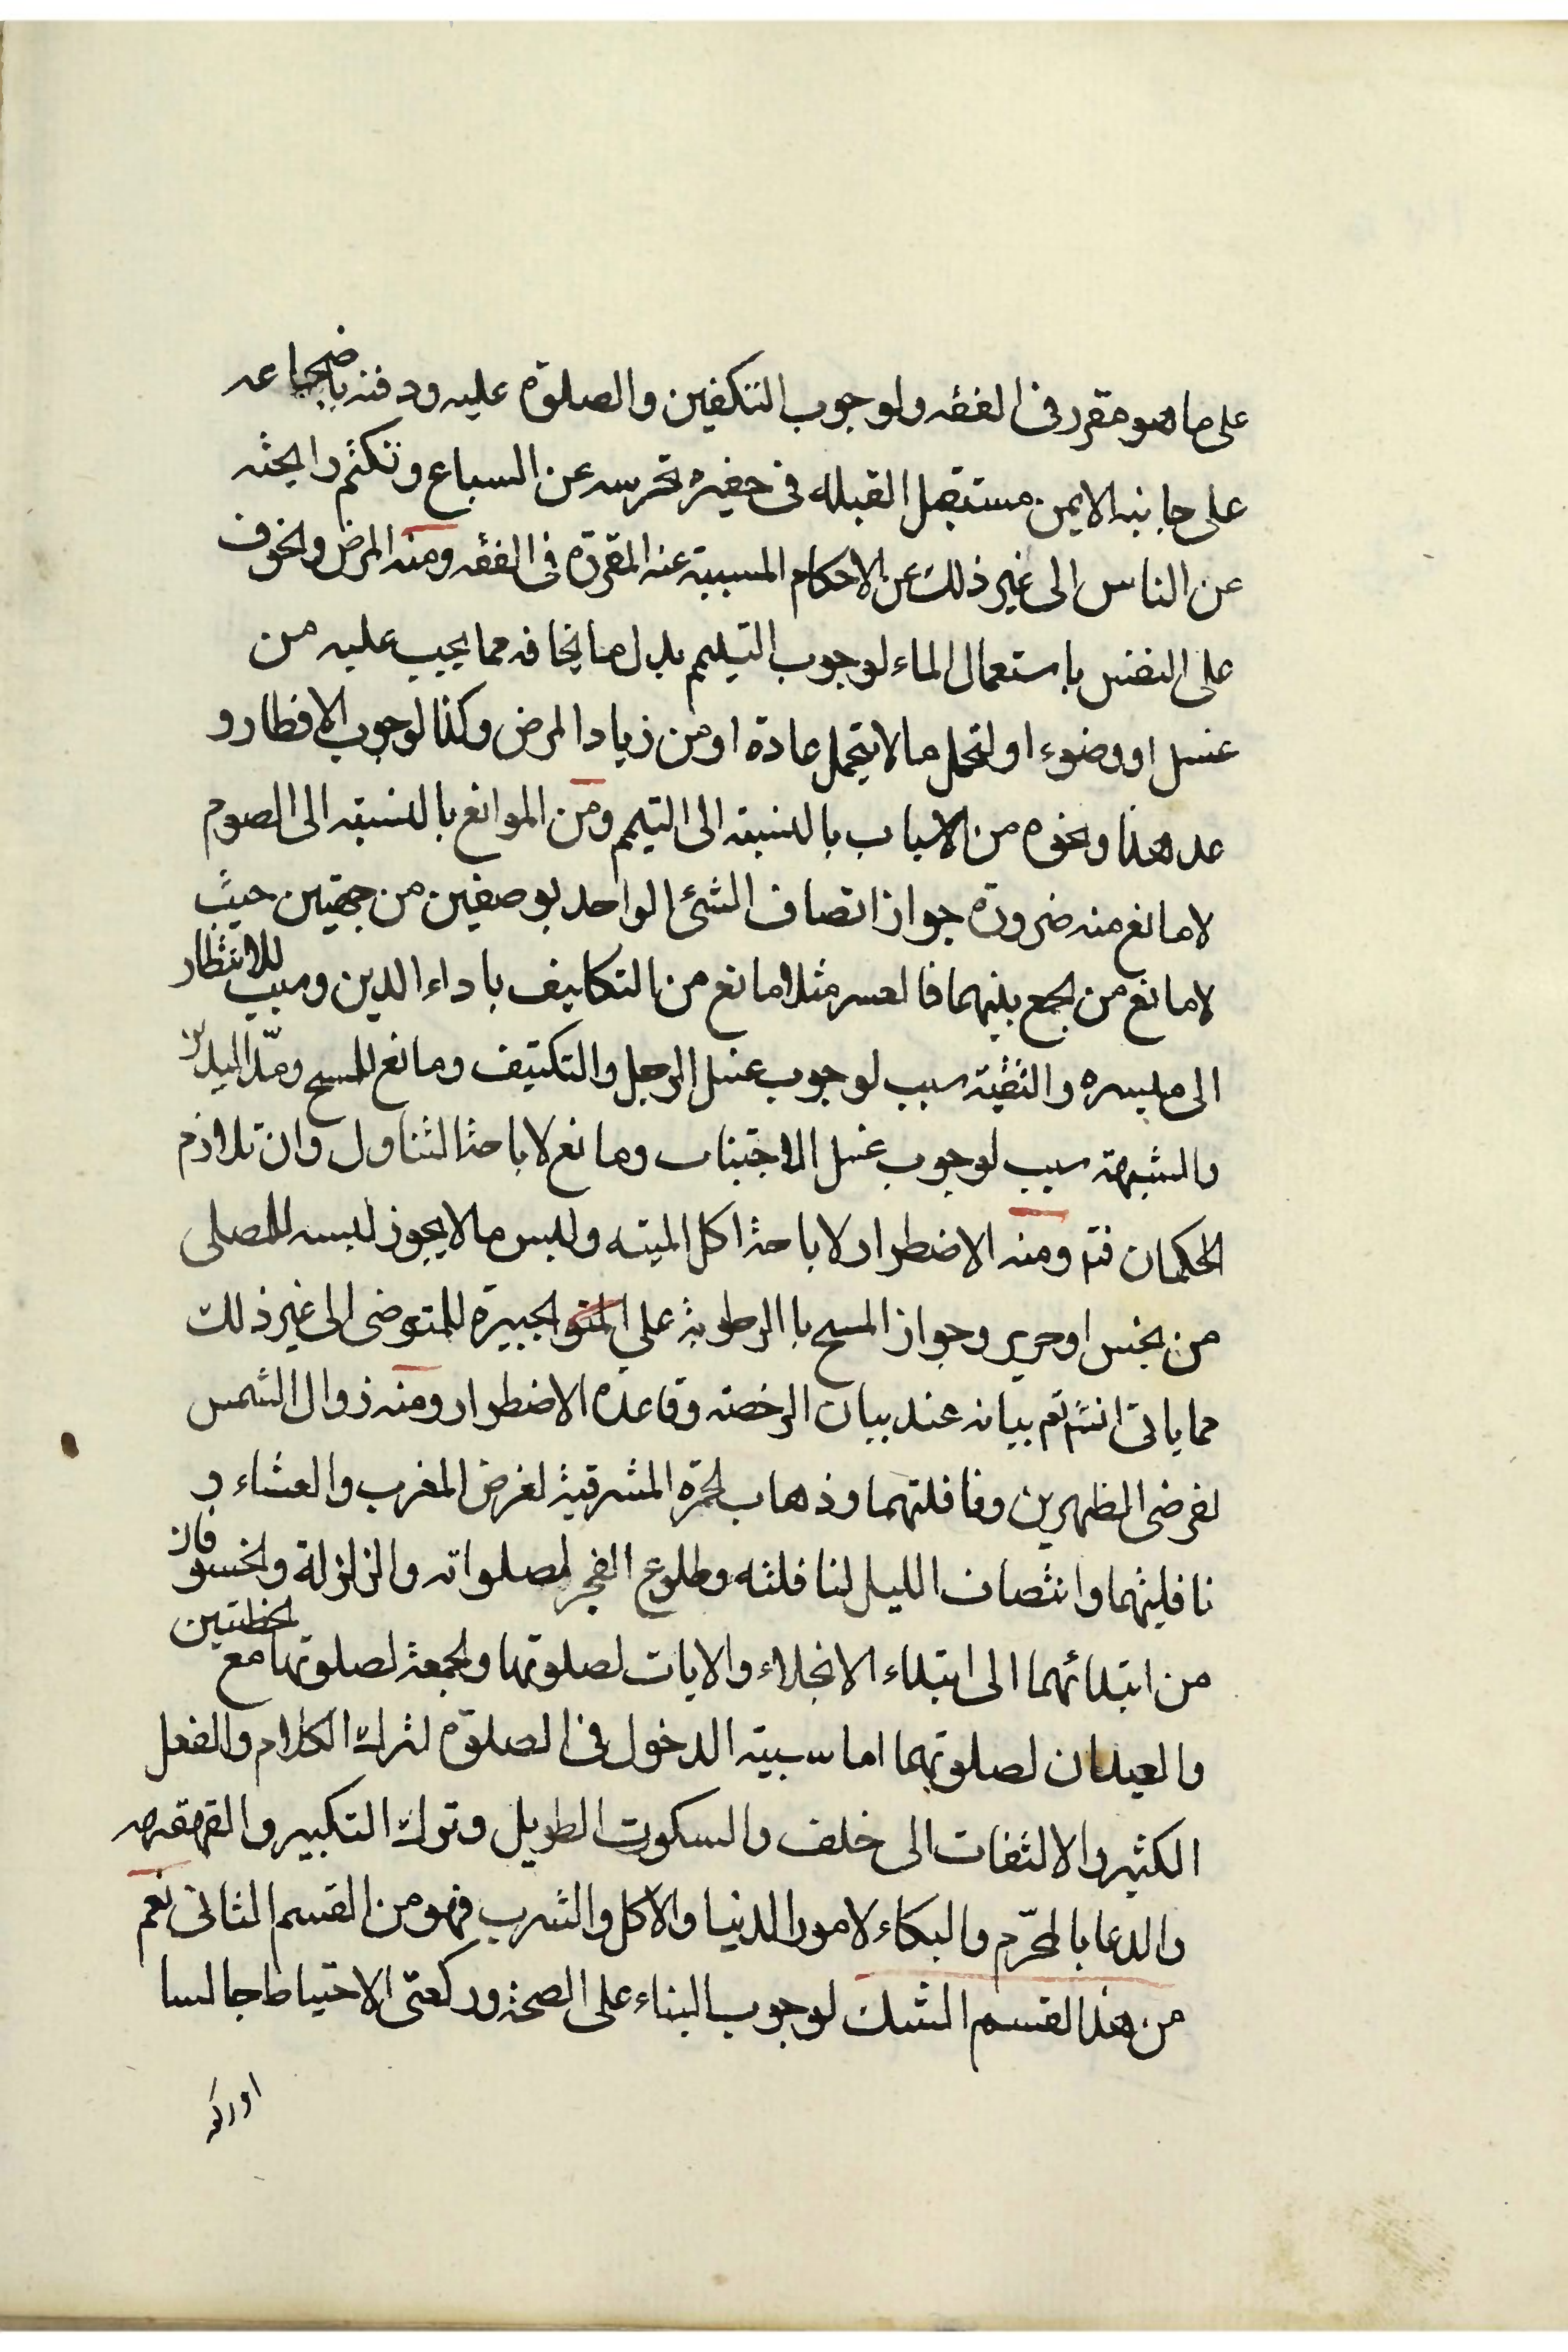 على ما هو مقرر فى الفقه ولوجوب التكفين والصلوة عليه ودفنه باضجاعه
على جانبه الايمن مستقبل القبله فى حفيره تحرسه عن السباع وتكتم رايحته
عن الناس الى غير ذلك عن الاحكام المسببة عنه المقررة فى الفقه ومنه المرض والخوف
على النفس باستعمال الماء لوجوب التيمم بدل ما يخافه مما يجب عليه من
غسل او وضوء او لتحمل ما لا يتحمل عادة او من زياد المرض وكذا لوجوب الافطار و
عد هذا ونحوه من الاسباب بالنسبته الى التيمم ومن الموانع بالنسبته الى الصوم
لا مانع منه ضرورة جواز اتصاف الشئ الواحد بوصفين من جهتين حيث
لا مانع من الجمع بينهما فالعسر مثلا مانع من التكاليف باداء الدين وسبب للانتظار
الى ميسره والتقيته سبب لوجوب غسل الرجل والتكتيف ومانع للمسح ومد اليدين
والشبهة سبب لوجوب غسل الاجتناب ومانع لاباحة التناول وان تلازم
الحكمان فتم ومنه الاضطرار لاباحة اكل الميته ولبس ما لا يجوز لبسه للمصلى
من نجس او حرير وجواز المسح با الرطوبة على الجبيرة للمتوضى الى غير ذلك
مما ياتى انشم تم بيانه عند بيان الرخصته وقاعده الاضطرار ومنه زوال الشمس
لفرضى الظهرين ونافلتهما وذهاب الحمرة المشرقية لفرض المغرب والعشاء و
نافليتهما وانتصاف الليل لنافلته وطلوع الفجر لصلواته والزلزلة والخسوفان
من ابتدائهما الى ابتداء الانجلاء والايات لصلوتها والجمعة لصلوتها مع الخطبتين
والعيدان لصلوتهما اما سببيته الدخول فى الصلوة لترك الكلام والفعل
الكثير والالتفات الى خلف والسكوت الطويل وترك التكبير والقهقهه
والدعا بالمحرّم والبكاء لامور الدنيا والاكل والشرب فهو من القسم الثانى نعم
من هذا القسم الشك لوجوب البناء على الصحة وركعتى الاحتياط جالسا
او ركعه